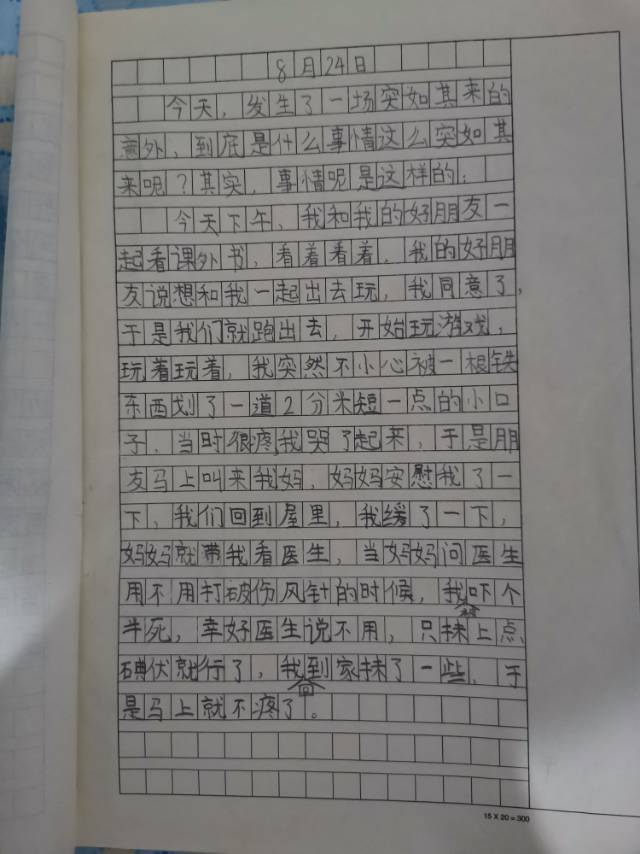 8月24日
今天，发生了一场突如其来的
意外，到底是什么事情这么突如其
来呢？其实，事情呢是这样的：
今天下午，我和我的好朋友一
起看课外书，看着看着，我的好朋
友说想和我一起出去玩，我同意了，
于是我们就跑出去，开始玩游戏，
玩着玩着，我突然不小心被一根铁
东西划了一道2分米短一点的小口
子，当时很疼，我哭了起来，于是朋
友马上叫来我妈，妈妈安慰我了一
下，我们回到屋里，我缓了一下，
妈妈就带我看医生，当妈妈问医生
用不用打破伤风针的时候，我吓个
半死，幸好医生说不用，只抹上点
碘伏就行了，我回到家抹了一些，于
是马上就不疼了。
15×20=300